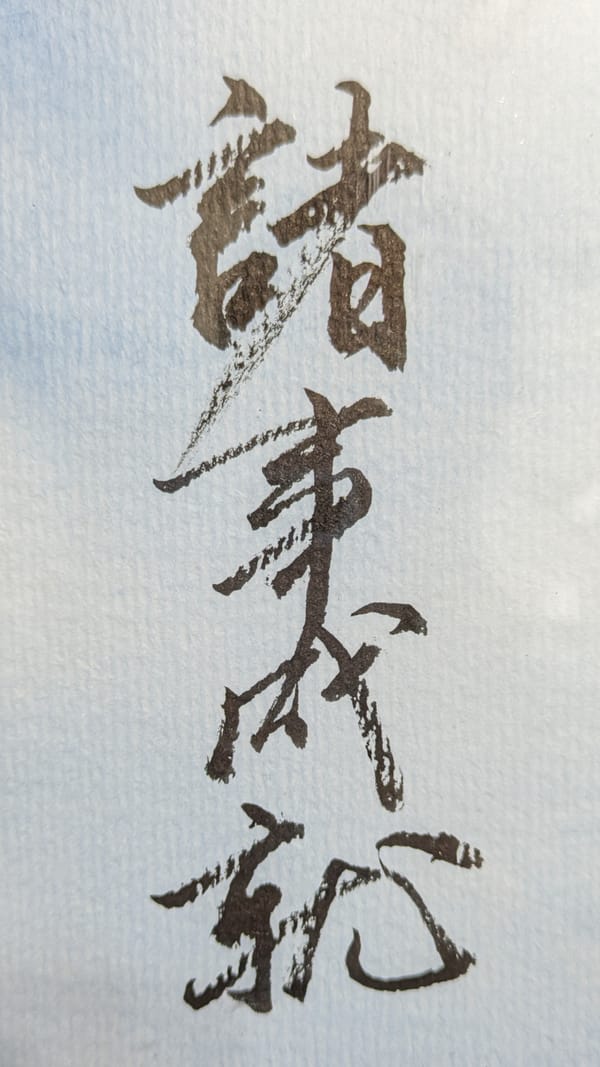 諸事成就